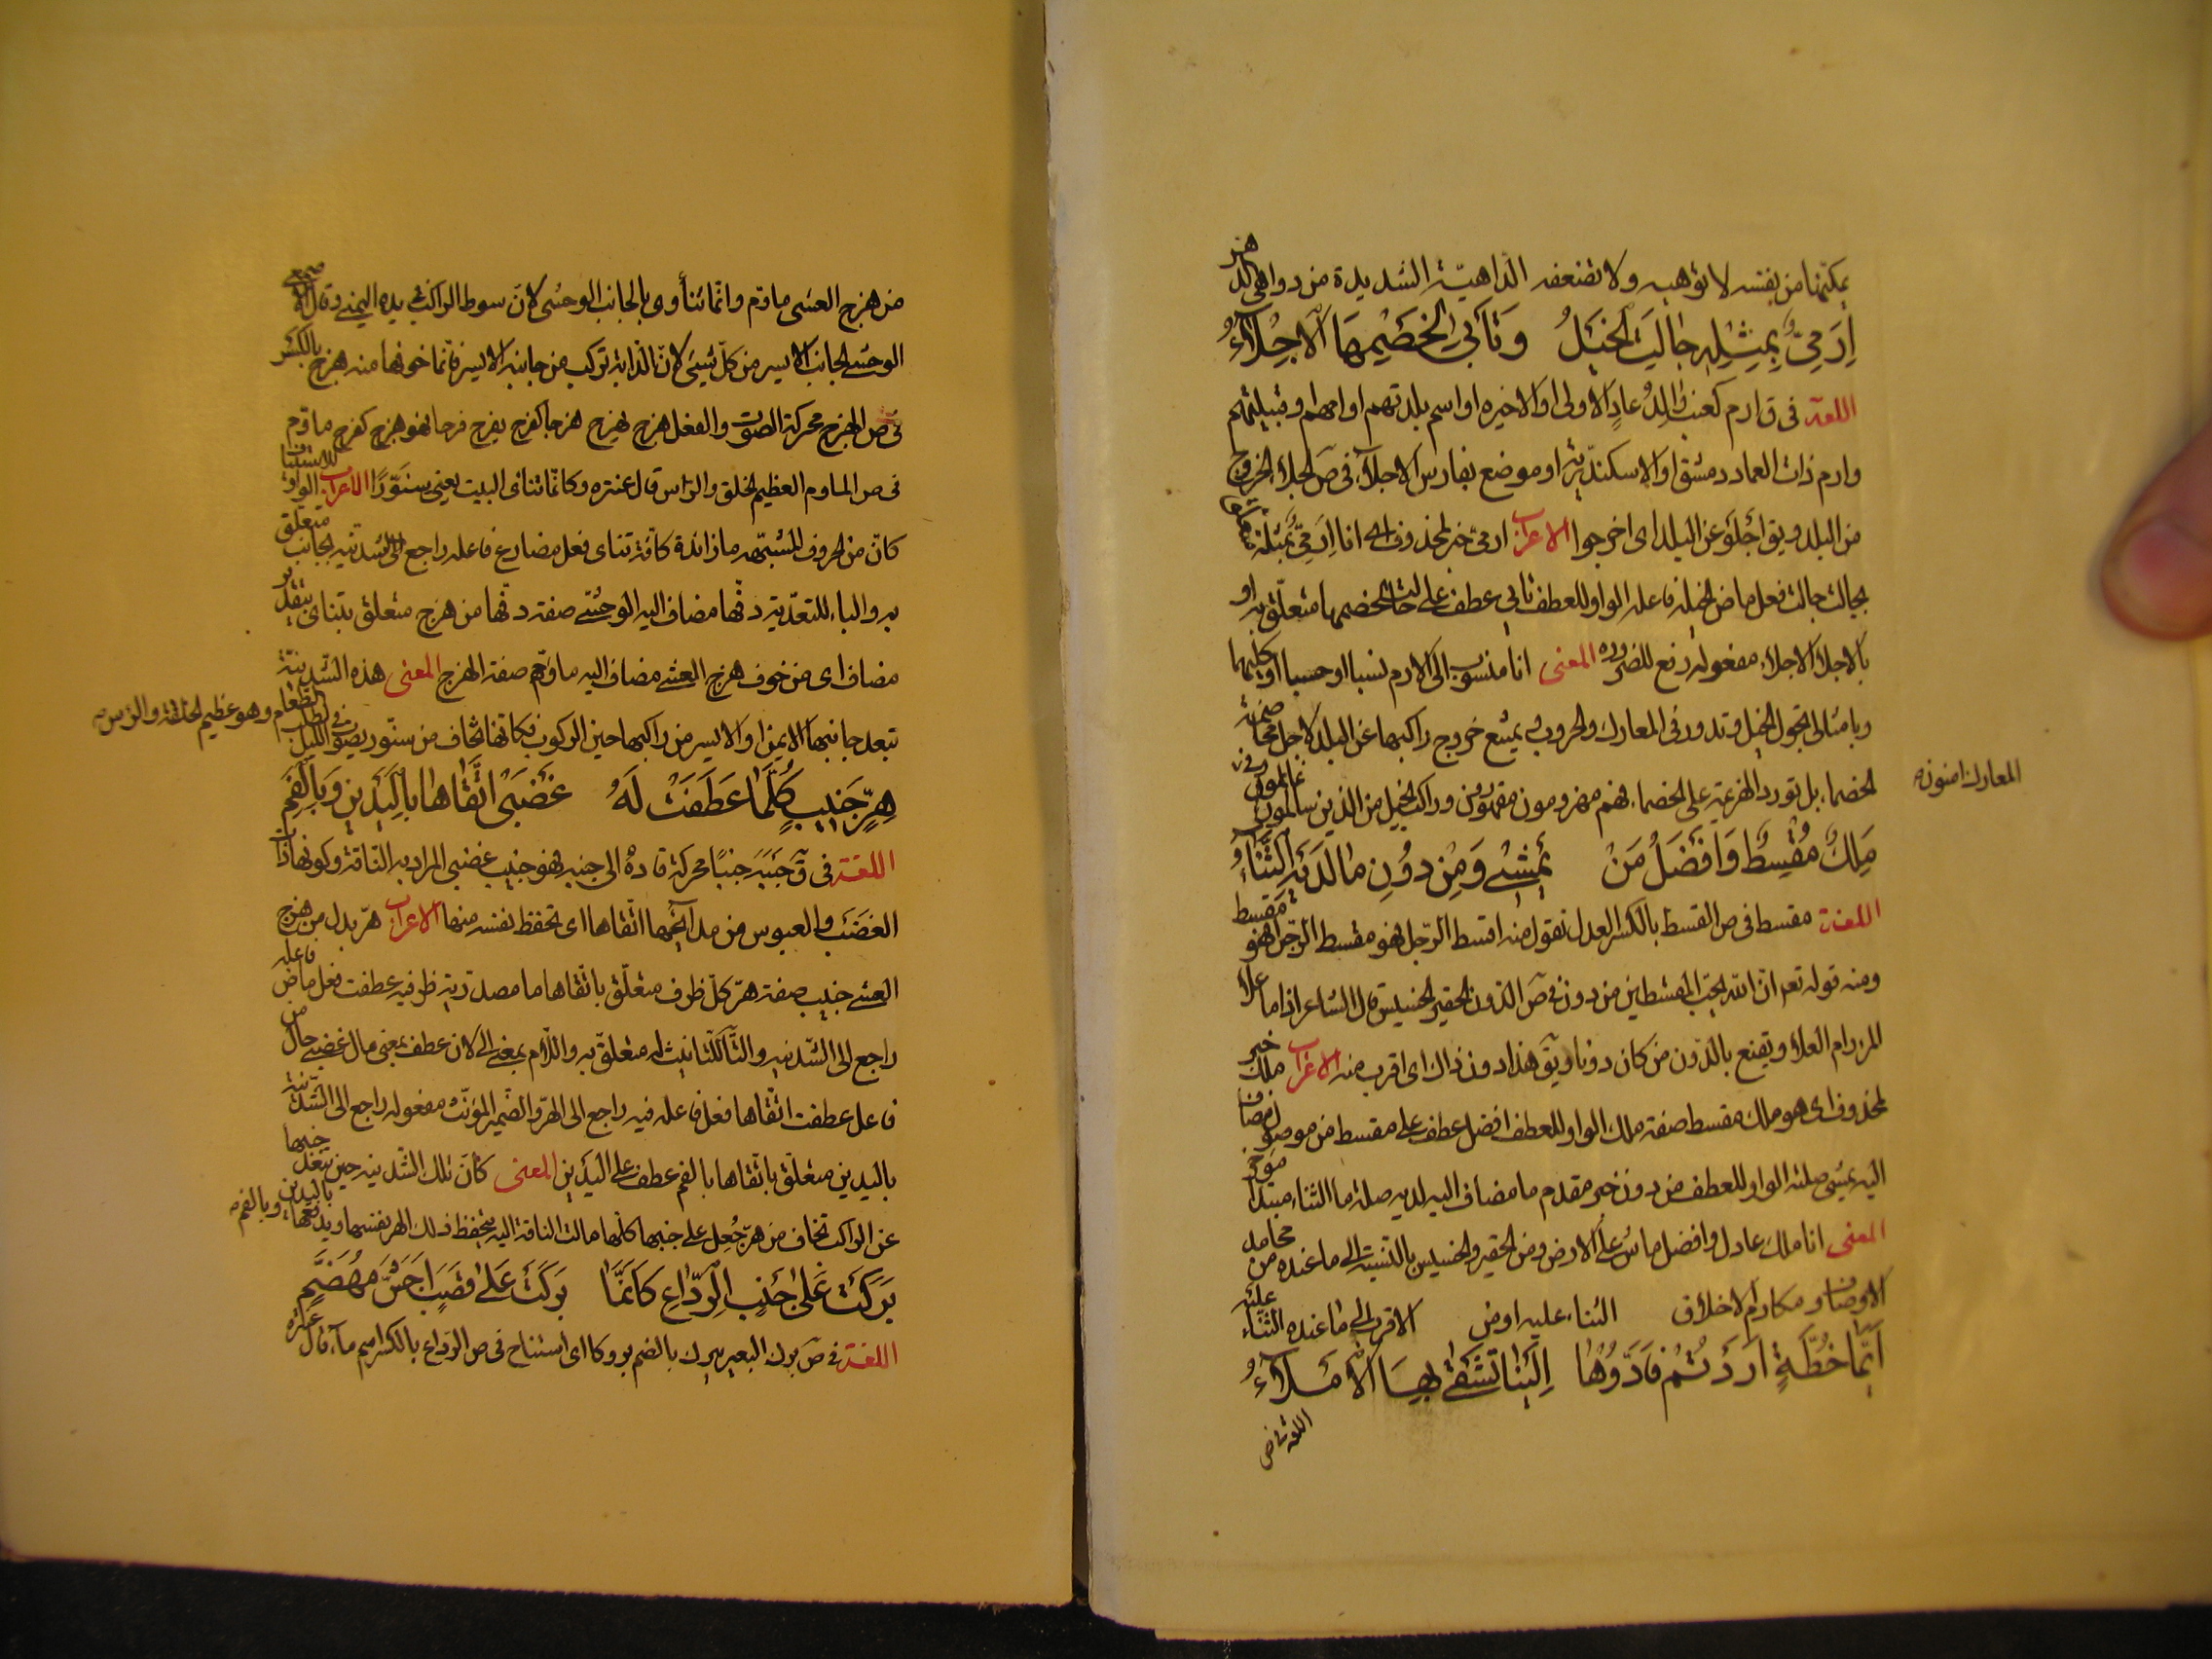 يمكنها من نفسه لا توهيه ولا تضعفه الداهية الشديدة من دواهى الدهر
اِرَمِيٌّ بِمِثْلِهِ جَالَتِ الْخَيْلُ وَتَأْبِي لِخَصْيِمِهَا الْاَجْلَاءُ
اللغة فى ق ارم كعنب والد عاد الاولى او الاخيره او اسم بلدتهم او امهم او قبيلتهم
وارم ذات العماد دمشق او الاسكندرية او موضع بفارس الاجلاء فى ص الجلاء الخروج
من البلد ويق اجلو عن البلد اى اخرجوا الاعراب ارمى خبر لمحذوف اى انا ارمى بمثله متعلق
بجالت جالت فعل ماض الخيل فاعله الواو للعطف تابى عطف على جالت لخصمها متعلق به او
بالاجلاء الاجلاء مفعوله رفع للضروره المعنى انا منسوب الى الارم نسبا او حسبا او كليهما
وبامثالى تجول الخيل وتدور فى المعارك والحروب يمتنع خروج راكبها عن البلد لاجل مخاصمة
الخصما، بل تورد الهزيمة على الخصما، فهم مهزومون مقهورون وراكب الخيل من الذين سالمون غانمون فى
المعارك امنون صح
مَلِكٌ مُقْسِطٌ وَاَفْضَلُ مَنْ يَمْشِى وَمِنْ دُوُنِ مَا لَدَيْهِ الثَّنَاءُ
اللغة مقسط فى ص القسط بالكسر العدل تقول منه اقسط الرجل فهو مقسط الرجل فهو مقسط
ومنه قوله تعم ان الله يحب المقسطين من دون فى ص الدون الحقير الخسيس قال الشاعر اذا ما علا
المرء رام العلاء ويقنع بالدون من كان دونا ويق هذا دون ذاك اى اقرب منه الاعراب ملك خبر
لمحذوف اى هو ملك مقسط صفة ملك الواو للعطف افضل عطف على مقسط من موصول مضاف
اليه يمشى صلته الواو للعطف من دون خبر مقدم ما مضاف اليه لديه صلة ما الثناء مبتدأ مؤخر
المعنى انا ملك عادل وافضل ماش على الارض ومن الحقير والخسيس بالنسبة الى ما عنده من محامد
الاوصاف ومكارم الاخلاق الثناء عليه او من الاقرب الى ما عنده الثناء عليه
اَيَّمَا خُطَّةٍ اَرَدْتُمْ فَاَدُّوُهَا اِلَيْنَا تَشْقَى بِهَا الْاَمْلَاءُ
اللغة فى ص
من هزج العشى ماوم وانما تنأوى بالجانب الوحشى لان سوط الراكب فى يده اليمنى وقال الاصمعى
الوحشى الجانب الايسر من كل شيئ لان الدابة تركب من جانبه الايسر فانما خوفها منه هزج بالكسر
فى ص الهزج محركة الصوت والفعل هزج يهزج هزجا كفرح يفرح فرحا فهو هزج كفرح ماوم
فى ص الماوم العظيم الخلق والراس قال عنتره وكانما تنأى البيت يعنى سنورا الاعراب الواو للاستيناف
كان من الحروف المشبهه ما زائدة كافة تنأى فعل مضارع فاعله راجع الى الشدنيه بجانب متعلق
به والباء للتعدية دفها مضاف اليه الوحشى صفة دفها من هزج متعلق بتنأى بتقدير
مضاف اى من خوف هزج العشى مضاف اليه ماوم صفة الهزج المعنى هذه الشدنية
تبعد جانبها الايمن او الايسر من راكبها حين الركوب فكانها تخاف من سنور يصوت فى الليل لطلب الطعام وهو عظيم الخلقة والرس صح
هِرٍّ جَنِيبٍ كُلَّمَا عَطَفَتْ لَهُ غَضْبَى اتَّقَاهَا بِالْيَدَيْنِ وَبِالْفَمِ
اللغة فى ق جَنَبَه جنبا محركة قاده الى جنبه فهو جنيب غضبى المراد به الناقة وكونها ذات
الغضب والعبوس من اتقاها اى تحفظ نفسه منها الاعراب هر بدل من هزج
العشى جنيب صفة هر كل ظرف متعلق باتقاها ما مصدرية ظرفيه عطفت فعل ماض فاعله
راجع الى الشدنيه والتاء للتانيث له متعلق به واللام بمعنى الى لان عطف بمعنى مال غضبى حال من
فاعل عطفت اتقاها فعل فاعله فيه راجع الى الهر والضمير المؤنث مفعوله راجع الى الشدنية
باليدين متعلق باتقاها بالفم عطف على اليدين المعنى كأن تلك الشدنيه حين جنبها
عن الراكب تخاف من هر جُعِل على جنبها كلما مالت الناقة اليه يتحفظ ذلك الهر نفسها ويدفعها باليدين وبالفم صح
بَرَكَتْ عَلَى جَنْبِ الرِّدَاعِ كَاَنَّمَا بَرَكَتْ عَلَى قَصَبٍ اَجَشَّ مُهَضَّمِ
اللغة فى ص برك البعير يبرك بالضم بروكا اى استناخ فى ص الرداع بالكسر اسم ماء قال عنتره